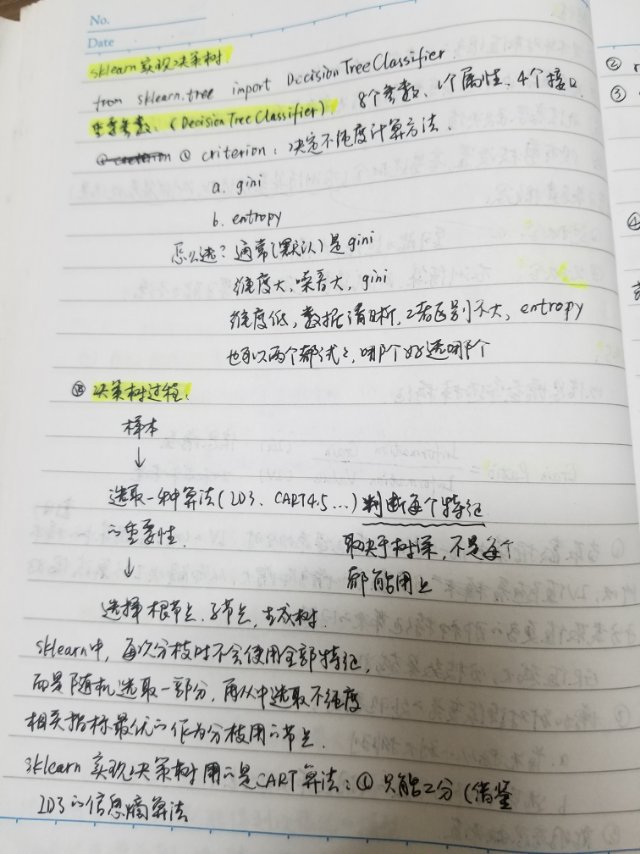 No.
Date
sklearn实现决策树.
from sklearn.tree import DecisionTreeClassifier.
重要参数. (DecisionTreeClassifier) 8个参数、1个属性、4个接口
① criterion ① criterion: 决定不纯度计算方法.
a. gini
b. entropy
怎么选? 通常(默认)是gini
维度大, 噪音大, gini
维度低, 数据清晰, 2者区别不大, entropy
也可以两个都试试, 哪个好选哪个
决策树过程:
样本
↓
选取一种算法(ID3、CART4.5...) 判断每个特征
的重要性. 取决于树深, 不是每个
↓ 都能用上
选择根节点、子节点, 生成树.
sklearn中, 每次分枝时不会使用全部特征,
而是随机选取一部分, 再从中选取不纯度
相关指标最优的作为分枝用的节点.
sklearn 实现决策树用的是CART算法: ① 只能二分 (借鉴
ID3的信息熵算法
②
③
④